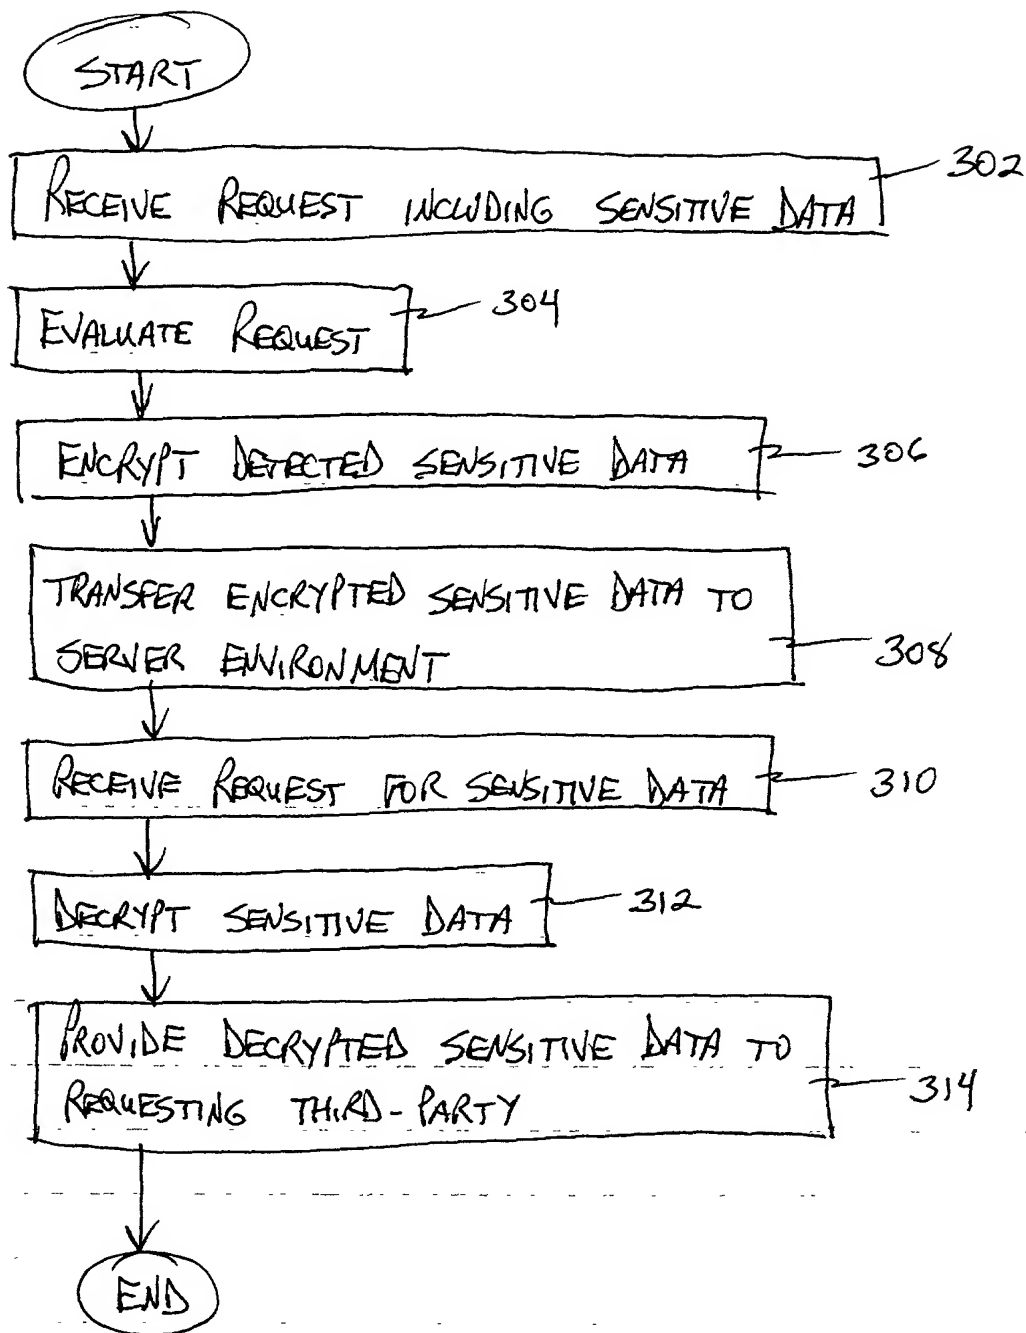 START
RECEIVE REQUEST INCLUDING SENSITIVE DATA
302
EVALUATE REQUEST
304
ENCRYPT DETECTED SENSITIVE DATA
306
TRANSFER ENCRYPTED SENSITIVE DATA TO
SERVER ENVIRONMENT
308
RECEIVE REQUEST FOR SENSITIVE DATA
310
DECRYPT SENSITIVE DATA
312
PROVIDE DECRYPTED SENSITIVE DATA TO
REQUESTING THIRD-PARTY
314
END